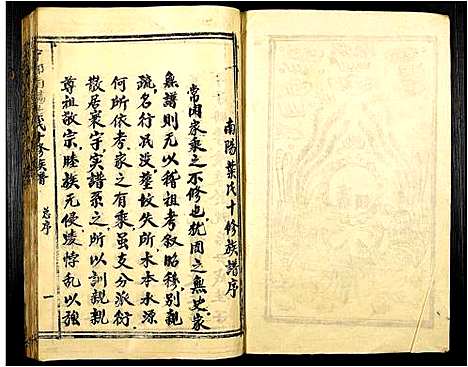 南陽葉氏十修族譜序
常闻家乘之不修也犹国之無史家
無譜則无以稽祖考叙昭穆别親
疏名行混没塋坟失所木本水源
何所依考家之有乘虽支分派衍
散居寰宇实譜系之所以訓親親
尊祖敬宗睦族无侵陵悖乱以強
氏十修族譜
总序
一